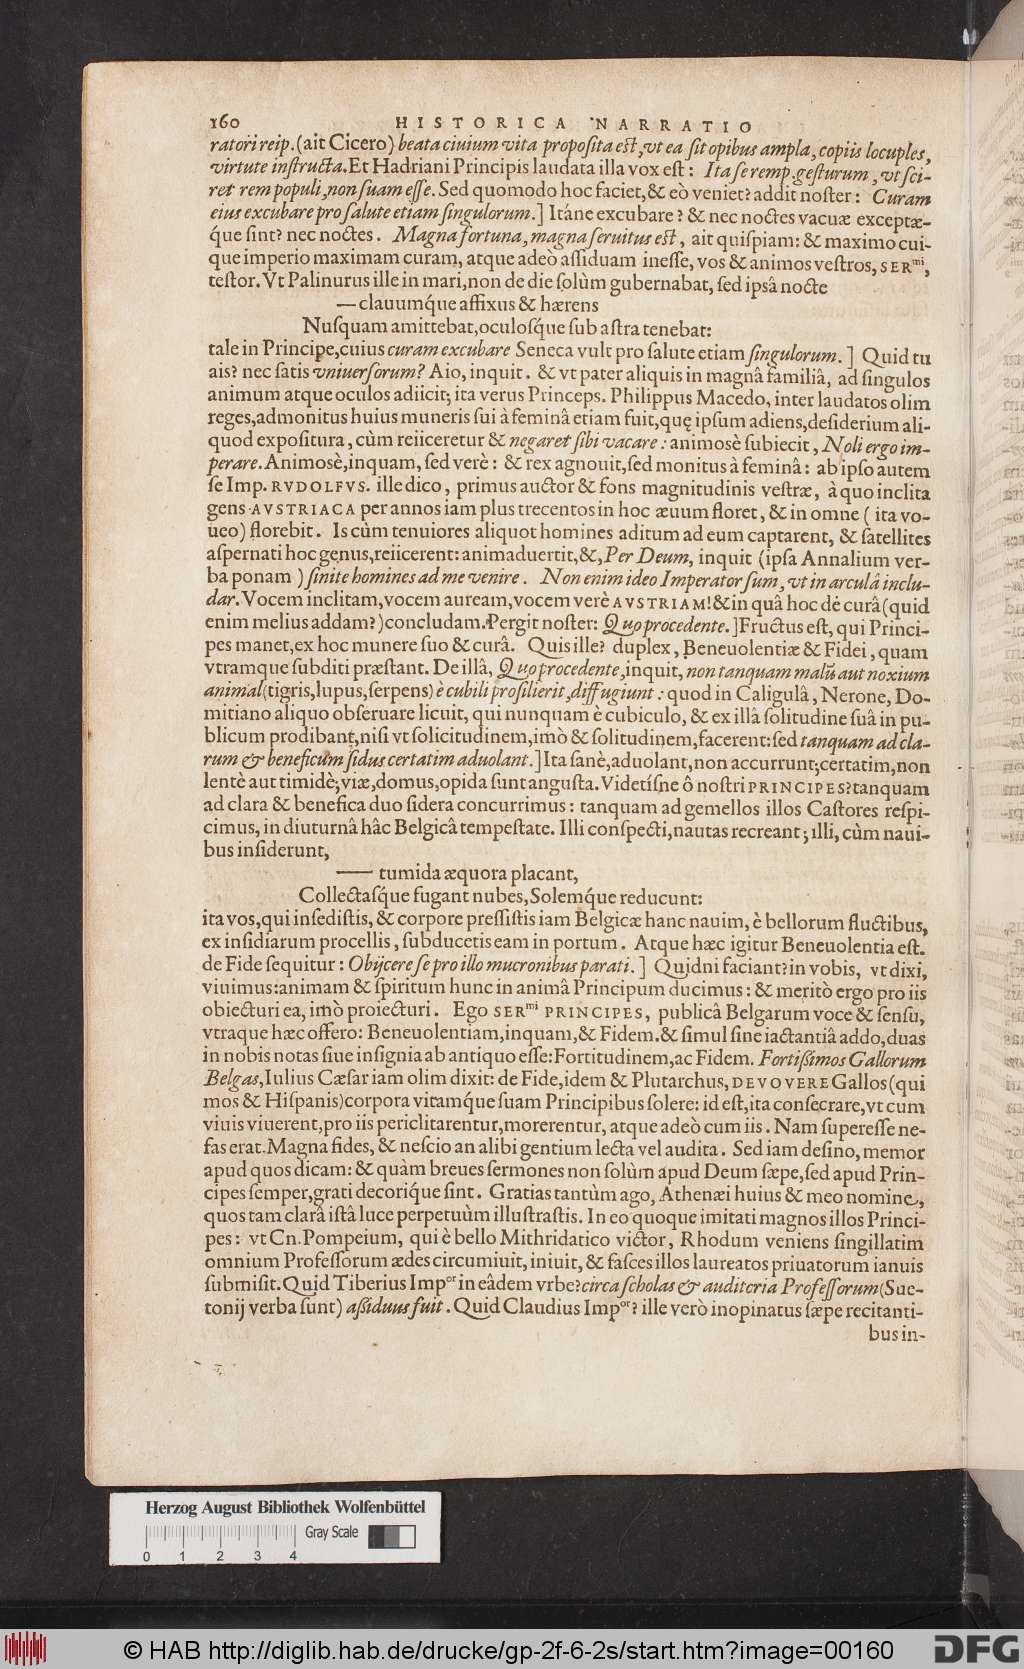 160 HISTORICA NARRATIO
ratori reip. (ait Cicero) beata ciuium vita proposita est, vt ea sit opibus ampla, copiis locuples,
virtute instructa. Et Hadriani Principis laudata illa vox est: Ita se remp. gesturum, vt sci-
ret rem populi, non suam esse. Sed quomodo hoc faciet, & eò veniet? addit noster: Curam
eius excubare pro salute etiam singulorum.] Itáne excubare? & nec noctes vacuæ exceptæ-
q́ue sint? nec noctes. Magna fortuna, magna seruitus est, ait quispiam: & maximo cui-
que imperio maximam curam, atque adeò assiduam inesse, vos & animos vestros, SER.mi,
testor. Vt Palinurus ille in mari, non de die solùm gubernabat, sed ipsâ nocte
— clauumq́ue affixus & hærens
Nusquam amittebat, oculosq́ue sub astra tenebat:
tale in Principe, cuius curam excubare Seneca vult pro salute etiam singulorum.] Quid tu
ais? nec satis vniuersorum? Aio, inquit. & vt pater aliquis in magnâ familiâ, ad singulos
animum atque oculos adiicit; ita verus Princeps. Philippus Macedo, inter laudatos olim
reges, admonitus huius muneris sui à feminâ etiam fuit, quę ipsum adiens, desiderium ali-
quod expositura, cùm reiiceretur & negaret sibi vacare: animosè subiecit, Noli ergo im-
perare. Animosè, inquam, sed verè: & rex agnouit, sed monitus à feminâ: ab ipso autem
se Imp. RVDOLFVS. ille dico, primus auctor & fons magnitudinis vestræ, à quo inclita
gens AVSTRIACA per annos iam plus trecentos in hoc æuum floret, & in omne (ita vo-
ueo) florebit. Is cùm tenuiores aliquot homines aditum ad eum captarent, & satellites
aspernati hoc genus, reiicerent: animaduertit, &, Per Deum, inquit (ipsa Annalium ver-
ba ponam) sinite homines ad me venire. Non enim ideo Imperator sum, vt in arculâ inclu-
dar. Vocem inclitam, vocem auream, vocem verè AVSTRIAM! & in quâ hoc de curâ (quid
enim melius addam?) concludam. Pergit noster: Quo procedente.] Fructus est, qui Princi-
pes manet, ex hoc munere suo & curâ. Quis ille? duplex, Beneuolentiæ & Fidei, quam
vtramque subditi præstant. De illâ, Quo procedente, inquit, non tanquam malū aut noxium
animal (tigris, lupus, serpens) è cubili prosilierit, diffugiunt: quod in Caligulâ, Nerone, Do-
mitiano aliquo obseruare licuit, qui nunquam è cubiculo, & ex illâ solitudine suâ in pu-
blicum prodibant, nisi vt solicitudinem, imò & solitudinem, facerent: sed tanquam ad cla-
rum & beneficum sidus certatim aduolant.] Ita sanè, aduolant, non accurrunt; certatim, non
lentè aut timidè; viæ, domus, opida sunt angusta. Videtísne ô nostri PRINCIPES? tanquam
ad clara & benefica duo sidera concurrimus: tanquam ad gemellos illos Castores respi-
cimus, in diuturnâ hâc Belgicâ tempestate. Illi conspecti, nautas recreant; illi, cùm naui-
bus insiderunt,
— tumida æquora placant,
Collectasq́ue fugant nubes, Solemq́ue reducunt:
ita vos, qui insedistis, & corpore pressistis iam Belgicæ hanc nauim, è bellorum fluctibus,
ex insidiarum procellis, subducetis eam in portum. Atque hæc igitur Beneuolentia est.
de Fide sequitur: Obijcere se pro illo mucronibus parati.] Quidni faciant? in vobis, vt dixi,
viuimus: animam & spiritum hunc in animâ Principum ducimus: & meritò ergo pro iis
obiecturi ea, imò proiecturi. Ego SER.mi PRINCIPES, publicâ Belgarum voce & sensu,
vtraque hæc offero: Beneuolentiam, inquam, & Fidem. & simul sine iactantiâ addo, duas
in nobis notas siue insignia ab antiquo esse: Fortitudinem, ac Fidem. Fortissimos Gallorum
Belgas, Iulius Cæsar iam olim dixit: de Fide, idem & Plutarchus, DEVOVERE Gallos (qui
mos & Hispanis) corpora vitamq́ue suam Principibus solere: id est, ita consecrare, vt cum
viuis viuerent, pro iis periclitarentur, morerentur, atque adeò cum iis. Nam superesse ne-
fas erat. Magna fides, & nescio an alibi gentium lecta vel audita. Sed iam desino, memor
apud quos dicam: & quàm breues sermones non solùm apud Deum sæpe, sed apud Prin-
cipes semper, grati decoriq́ue sint. Gratias tantùm ago, Athenæi huius & meo nomine,
quos tam clarâ istâ luce perpetuùm illustrastis. In eo quoque imitati magnos illos Princi-
pes: vt Cn. Pompeium, qui è bello Mithridatico victor, Rhodum veniens singillatim
omnium Professorum ædes circumiuit, iniuit, & fasces illos laureatos priuatorum ianuis
submisit. Quid Tiberius Imp.or in eâdem vrbe? circa scholas & auditoria Professorum (Sue-
tonij verba sunt) assiduus fuit. Quid Claudius Imp.or? ille verò inopinatus sæpe recitanti-
bus in-
Herzog August Bibliothek Wolfenbüttel
Gray Scale
0 1 2 3 4
© HAB http://diglib.hab.de/drucke/gp-2f-6-2s/start.htm?image=00160
DFG